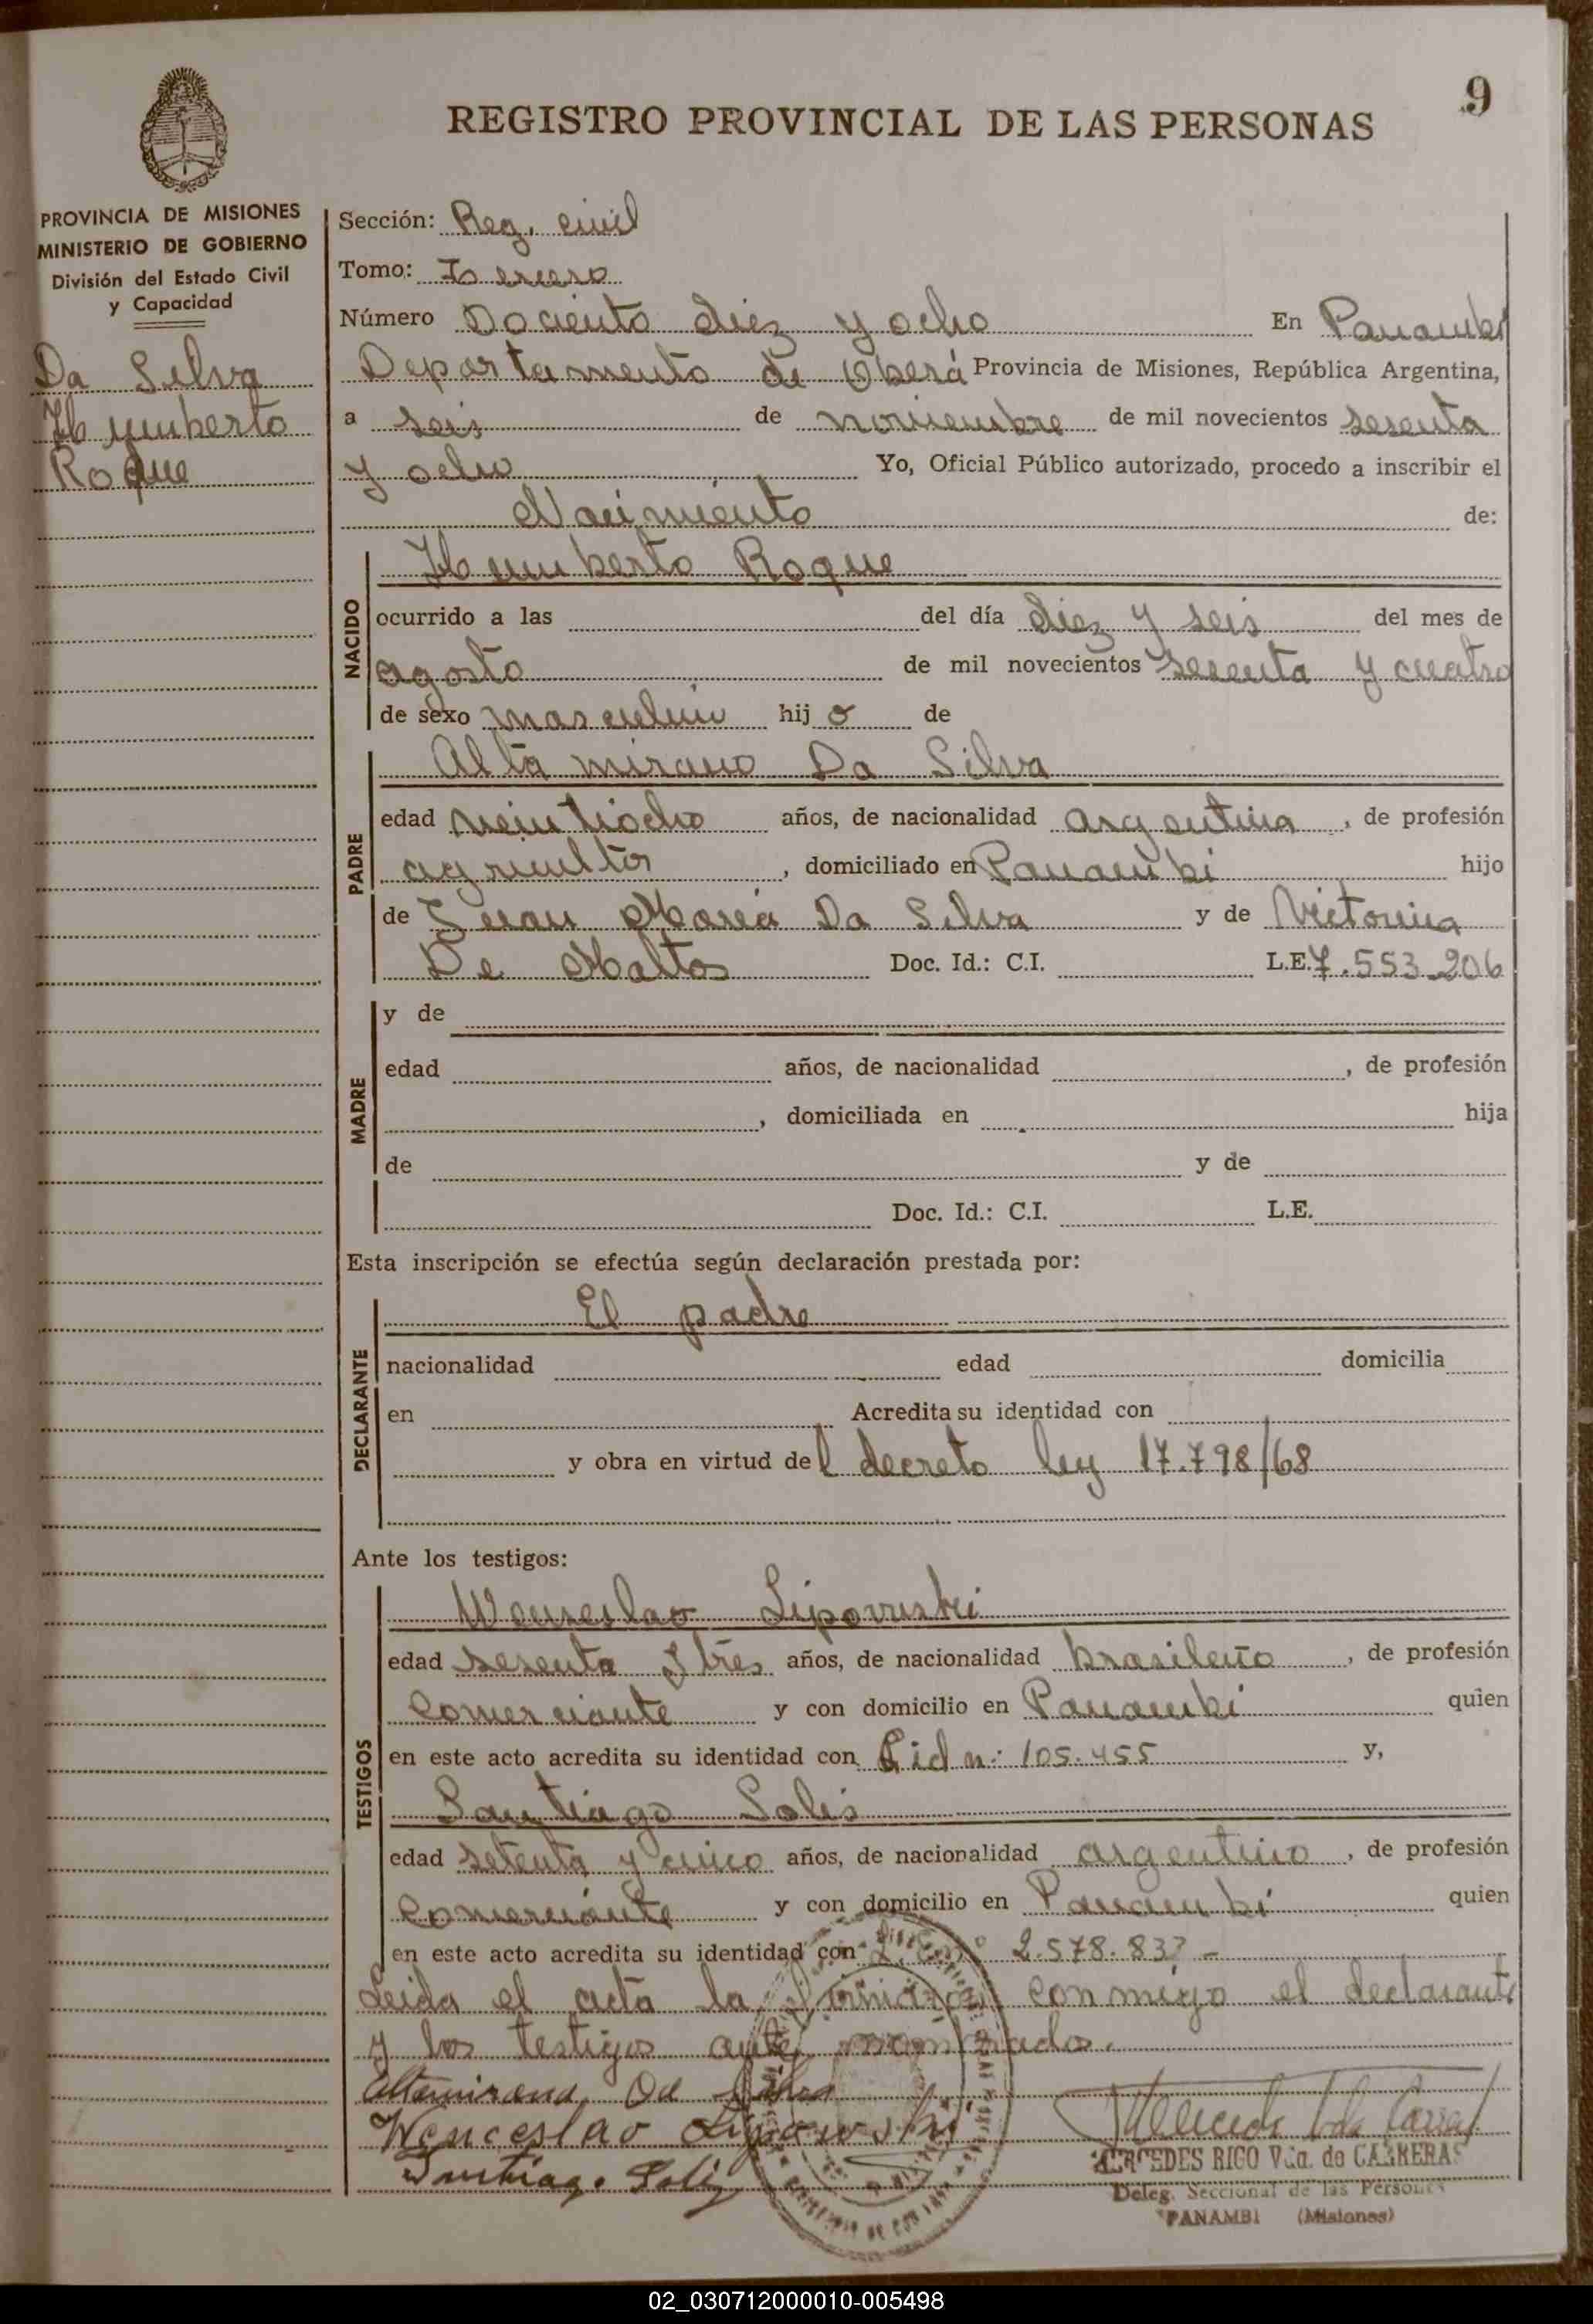 9
REGISTRO PROVINCIAL DE LAS PERSONAS
PROVINCIA DE MISIONES
MINISTERIO DE GOBIERNO
División del Estado Civil
y Capacidad
Da Silva
Humberto
Roque
Sección: Reg. civil
Tomo: Tercero
Número Dociento diez y ocho En Panambí
Departamento de Oberá Provincia de Misiones, República Argentina,
a seis de noviembre de mil novecientos sesenta
y ocho Yo, Oficial Público autorizado, procedo a inscribir el
Nacimiento de:
NACIDO
Humberto Roque
ocurrido a las del día diez y seis del mes de
agosto de mil novecientos sesenta y cuatro
de sexo masculino hij o de
PADRE
Altamirano Da Silva
edad veintiocho años, de nacionalidad argentina, de profesión
agricultor, domiciliado en Panambí hijo
de Juan María Da Silva y de Victorina
De Mattos Doc. Id.: C.I. L.E. 7.553.206
MADRE
y de
edad años, de nacionalidad , de profesión
, domiciliada en hija
de y de
Doc. Id.: C.I. L.E.
Esta inscripción se efectúa según declaración prestada por:
DECLARANTE
El padre
nacionalidad edad domicilia
en Acredita su identidad con
y obra en virtud del decreto ley 17.798/68
Ante los testigos:
TESTIGOS
Wenseslao Lipovuski
edad sesenta y tres años, de nacionalidad brasileño, de profesión
Comerciante y con domicilio en Panambí quien
en este acto acredita su identidad con C id n: 105.455 y,
Santiago Solis
edad setenta y cinco años, de nacionalidad argentino, de profesión
Comerciante y con domicilio en Panambí quien
en este acto acredita su identidad con L. En° 2.578.83
Leida el acta la firman conmigo el declarante
y los testigos ante nombrado.
Altamirano Da Silva
Wenceslao Lipowski
Santiago Solis
MERCEDES RIGO Vda. de CABRERA
Deleg. Seccional de las Personas
PANAMBI (Misiones)
02_030712000010-005498